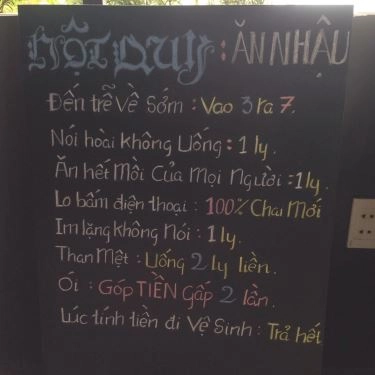 NỘI QUY : ĂN NHẬU
Đến trễ Về Sớm : Vao 3 ra 7.
Nói hoài không Uống : 1 ly.
Ăn hết Mồi Của Mọi Người : 1 ly.
Lo bấm điện thoại : 100% Chai Mới
Im lặng không Nói : 1 ly.
Than Mệt : Uống 2 ly liền.
Ói : Góp TIỀN Gấp 2 lần.
Lúc tính tiền đi Vệ Sinh : Trả hết